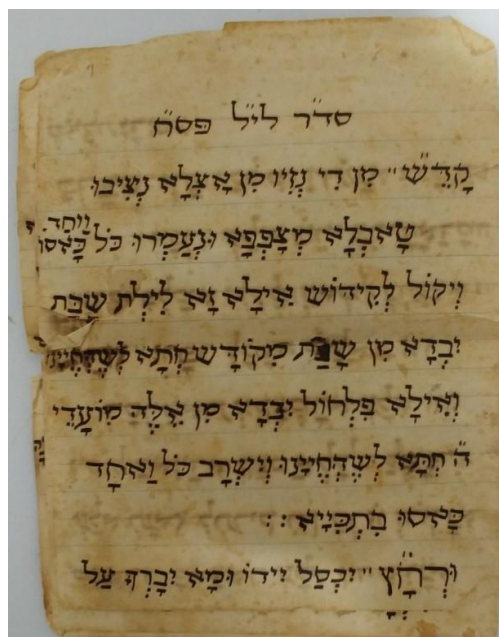 סד״ר לי״ל פס״ח
קַדֵּשׁ״ מִן דִי נְזִיו מִן אַצְלָא נְצִיבוּ
טָאבְלָא מְצַפְּפָא וּנְעַמְרוּ כֹּל וַּוחַד כָּאסוּ
וְיִקוֹל לְקִידוּשׁ אִילָא זָא לִילְת שַׁבָּת
יִבְדָא מִן שַׁבָּת מִקוֹדָשׁ חְתָא לְשֶׁהֶחֱיָינוּ
וְאִילָא פִלְחוֹל יִבְדָא מִן אֵלֶּה מוֹעֲדֵי
ה״ חְתָּא לְשֶׁהֶחֱיָינוּ וְיִשְׁרָב כֹּל וַאחָד
כָּאסוּ בִתְכִּייָא : :
וּרְחַ״ץ״ יִכְסַל יִידוֹ וּמָא יִבָרְךּ עַל